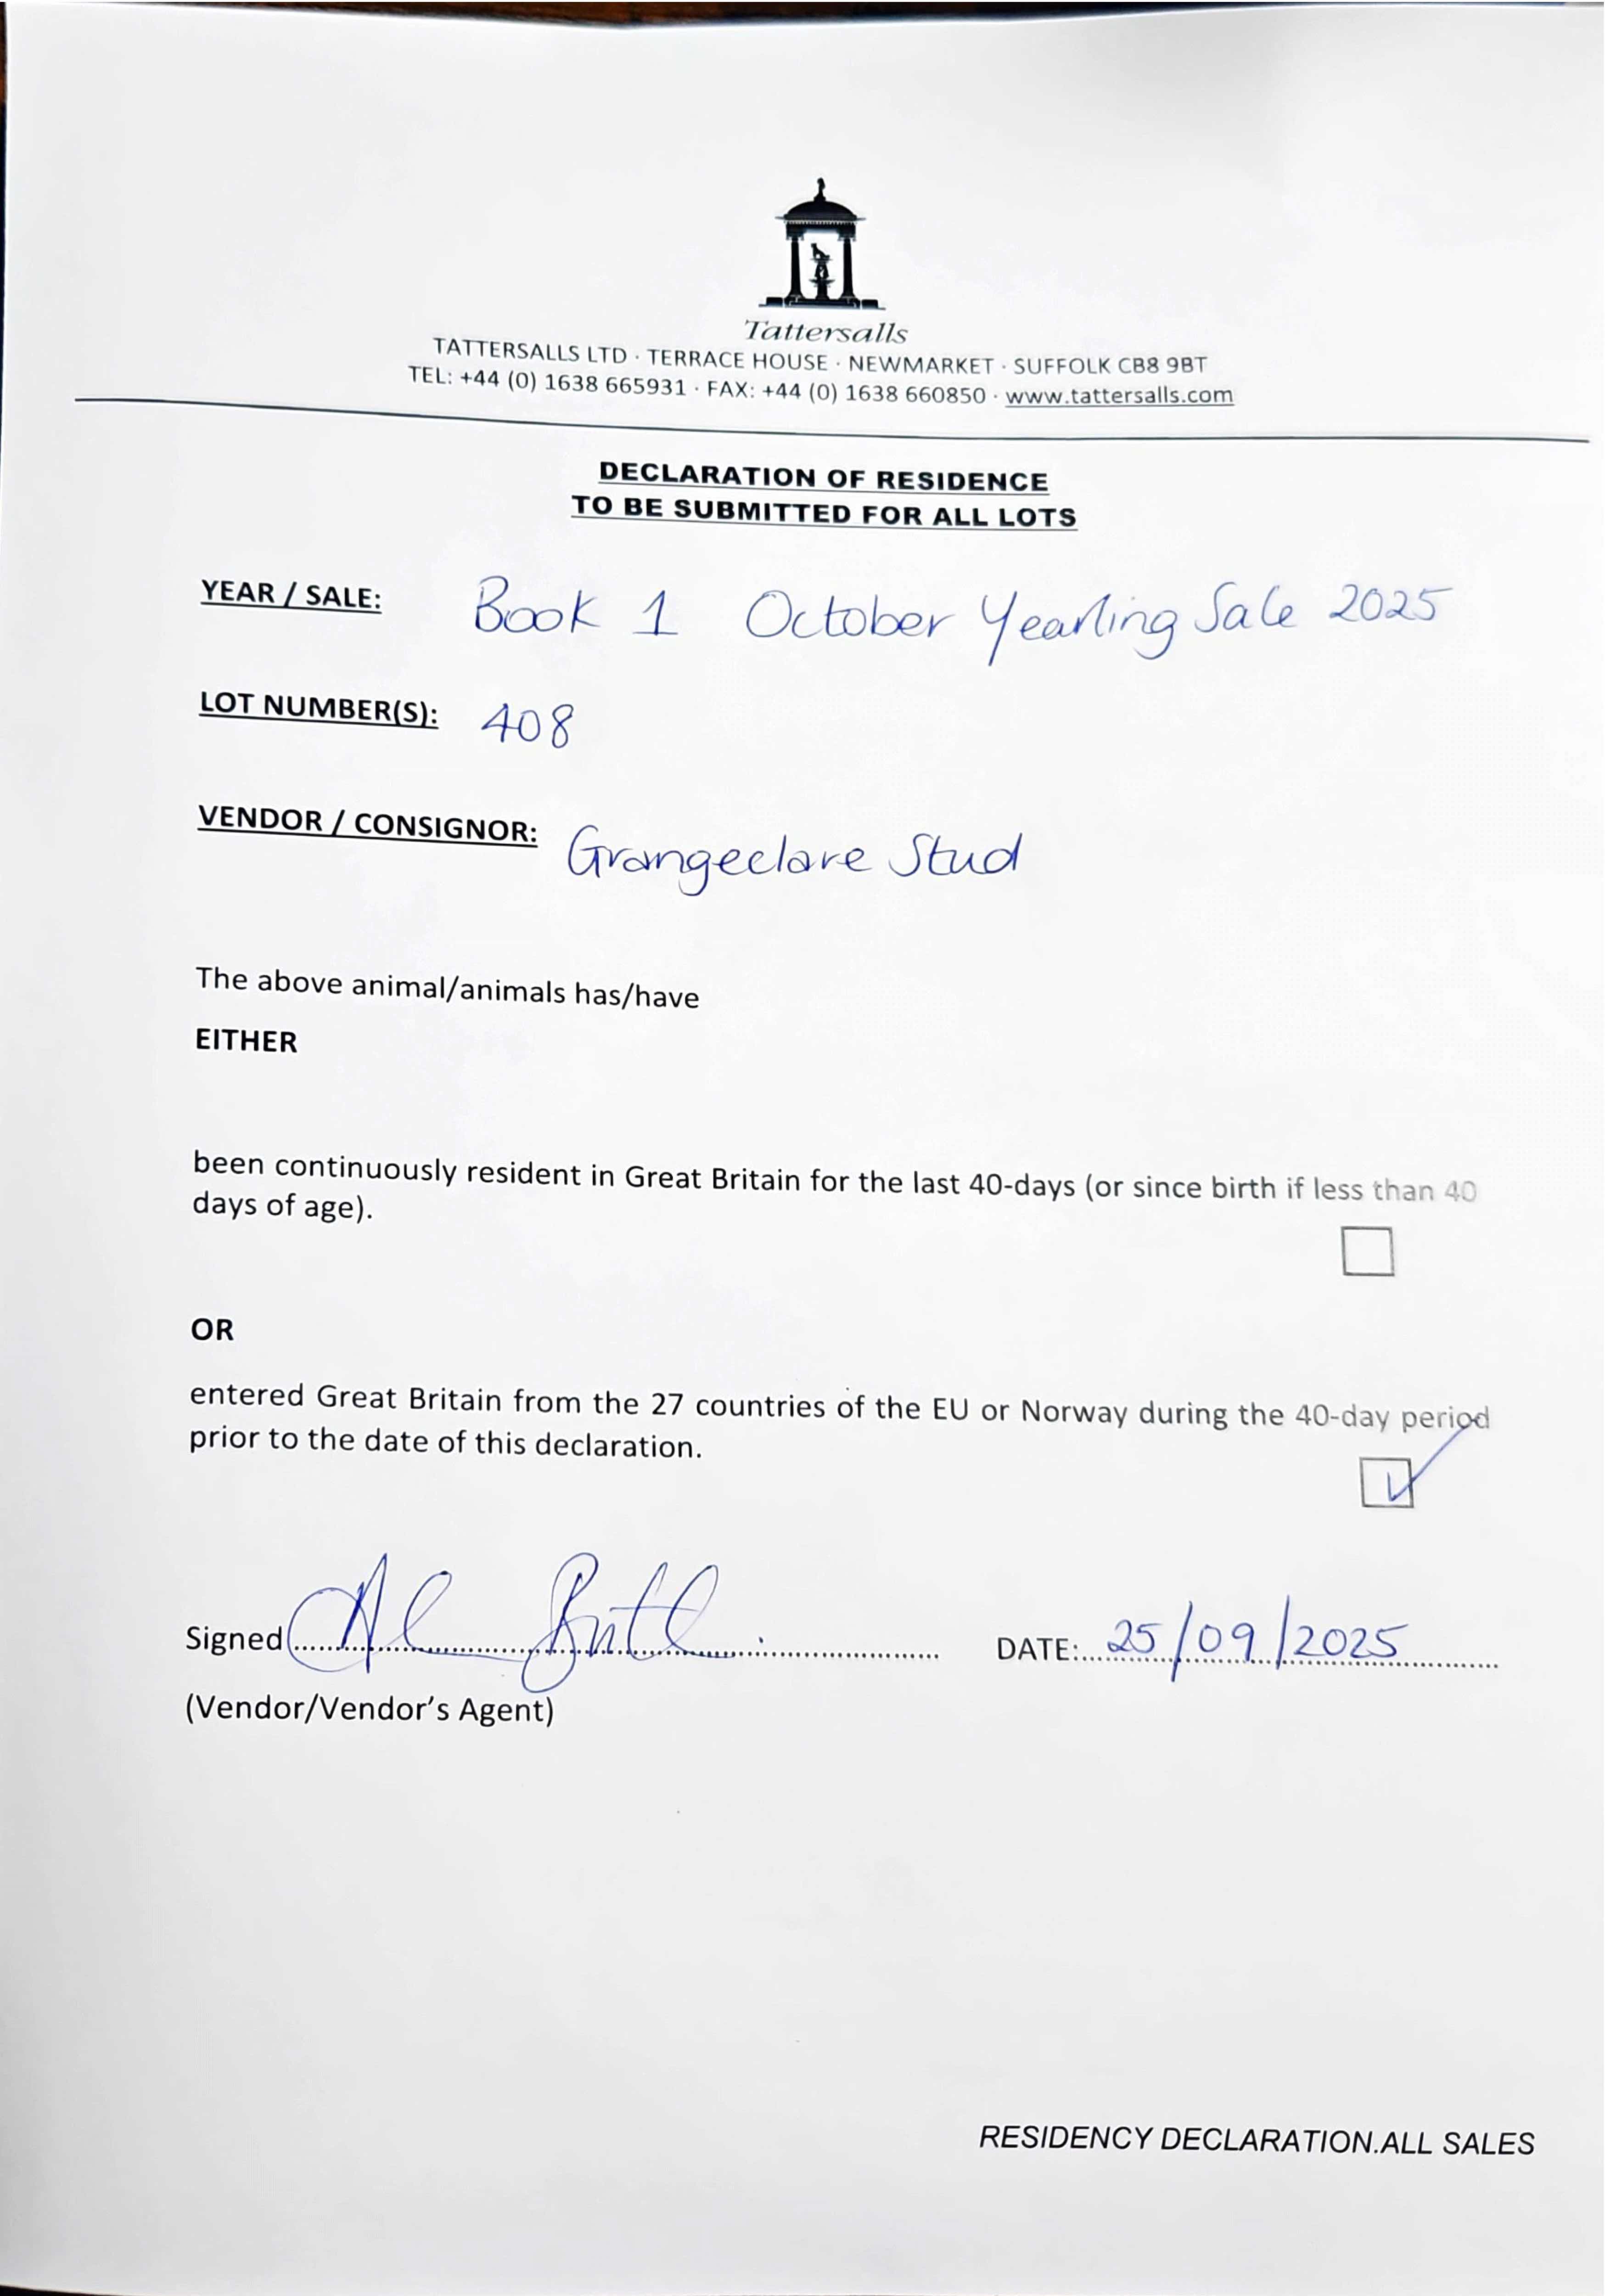 Tattersalls
TATTERSALLS LTD · TERRACE HOUSE · NEWMARKET · SUFFOLK CB8 9BT
TEL: +44 (0) 1638 665931 · FAX: +44 (0) 1638 660850 · www.tattersalls.com
DECLARATION OF RESIDENCE
TO BE SUBMITTED FOR ALL LOTS
YEAR / SALE: Book 1 October Yearling Sale 2025
LOT NUMBER(S): 408
VENDOR / CONSIGNOR: Grangeclare Stud
The above animal/animals has/have
EITHER
been continuously resident in Great Britain for the last 40-days (or since birth if less than 40
days of age).
OR
entered Great Britain from the 27 countries of the EU or Norway during the 40-day period
prior to the date of this declaration.
Signed DATE: 25/09/2025
(Vendor/Vendor's Agent)
RESIDENCY DECLARATION.ALL SALES